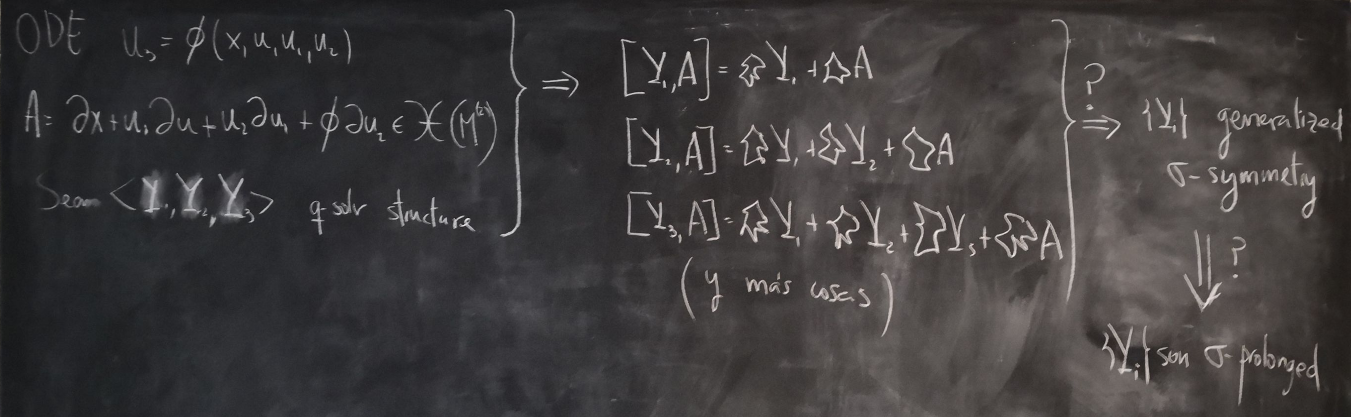 ODE u₃ = ϕ(x, u, u₁, u₂)
A = ∂x + u₁∂u + u₂∂u₁ + ϕ∂u₂ ∈ 𝔛(M⁽²⁾)
Sean <Y₁, Y₂, Y₃> q solv structure
⇒
[Y₁, A] = Y₁ + A
[Y₂, A] = Y₁ + Y₂ + A
[Y₃, A] = Y₁ + Y₂ + Y₃ + A
(y más cosas)
?
⇒ {Yᵢ} generalized
σ-symmetry
⇓ ?
{Yᵢ} son σ-prolonged